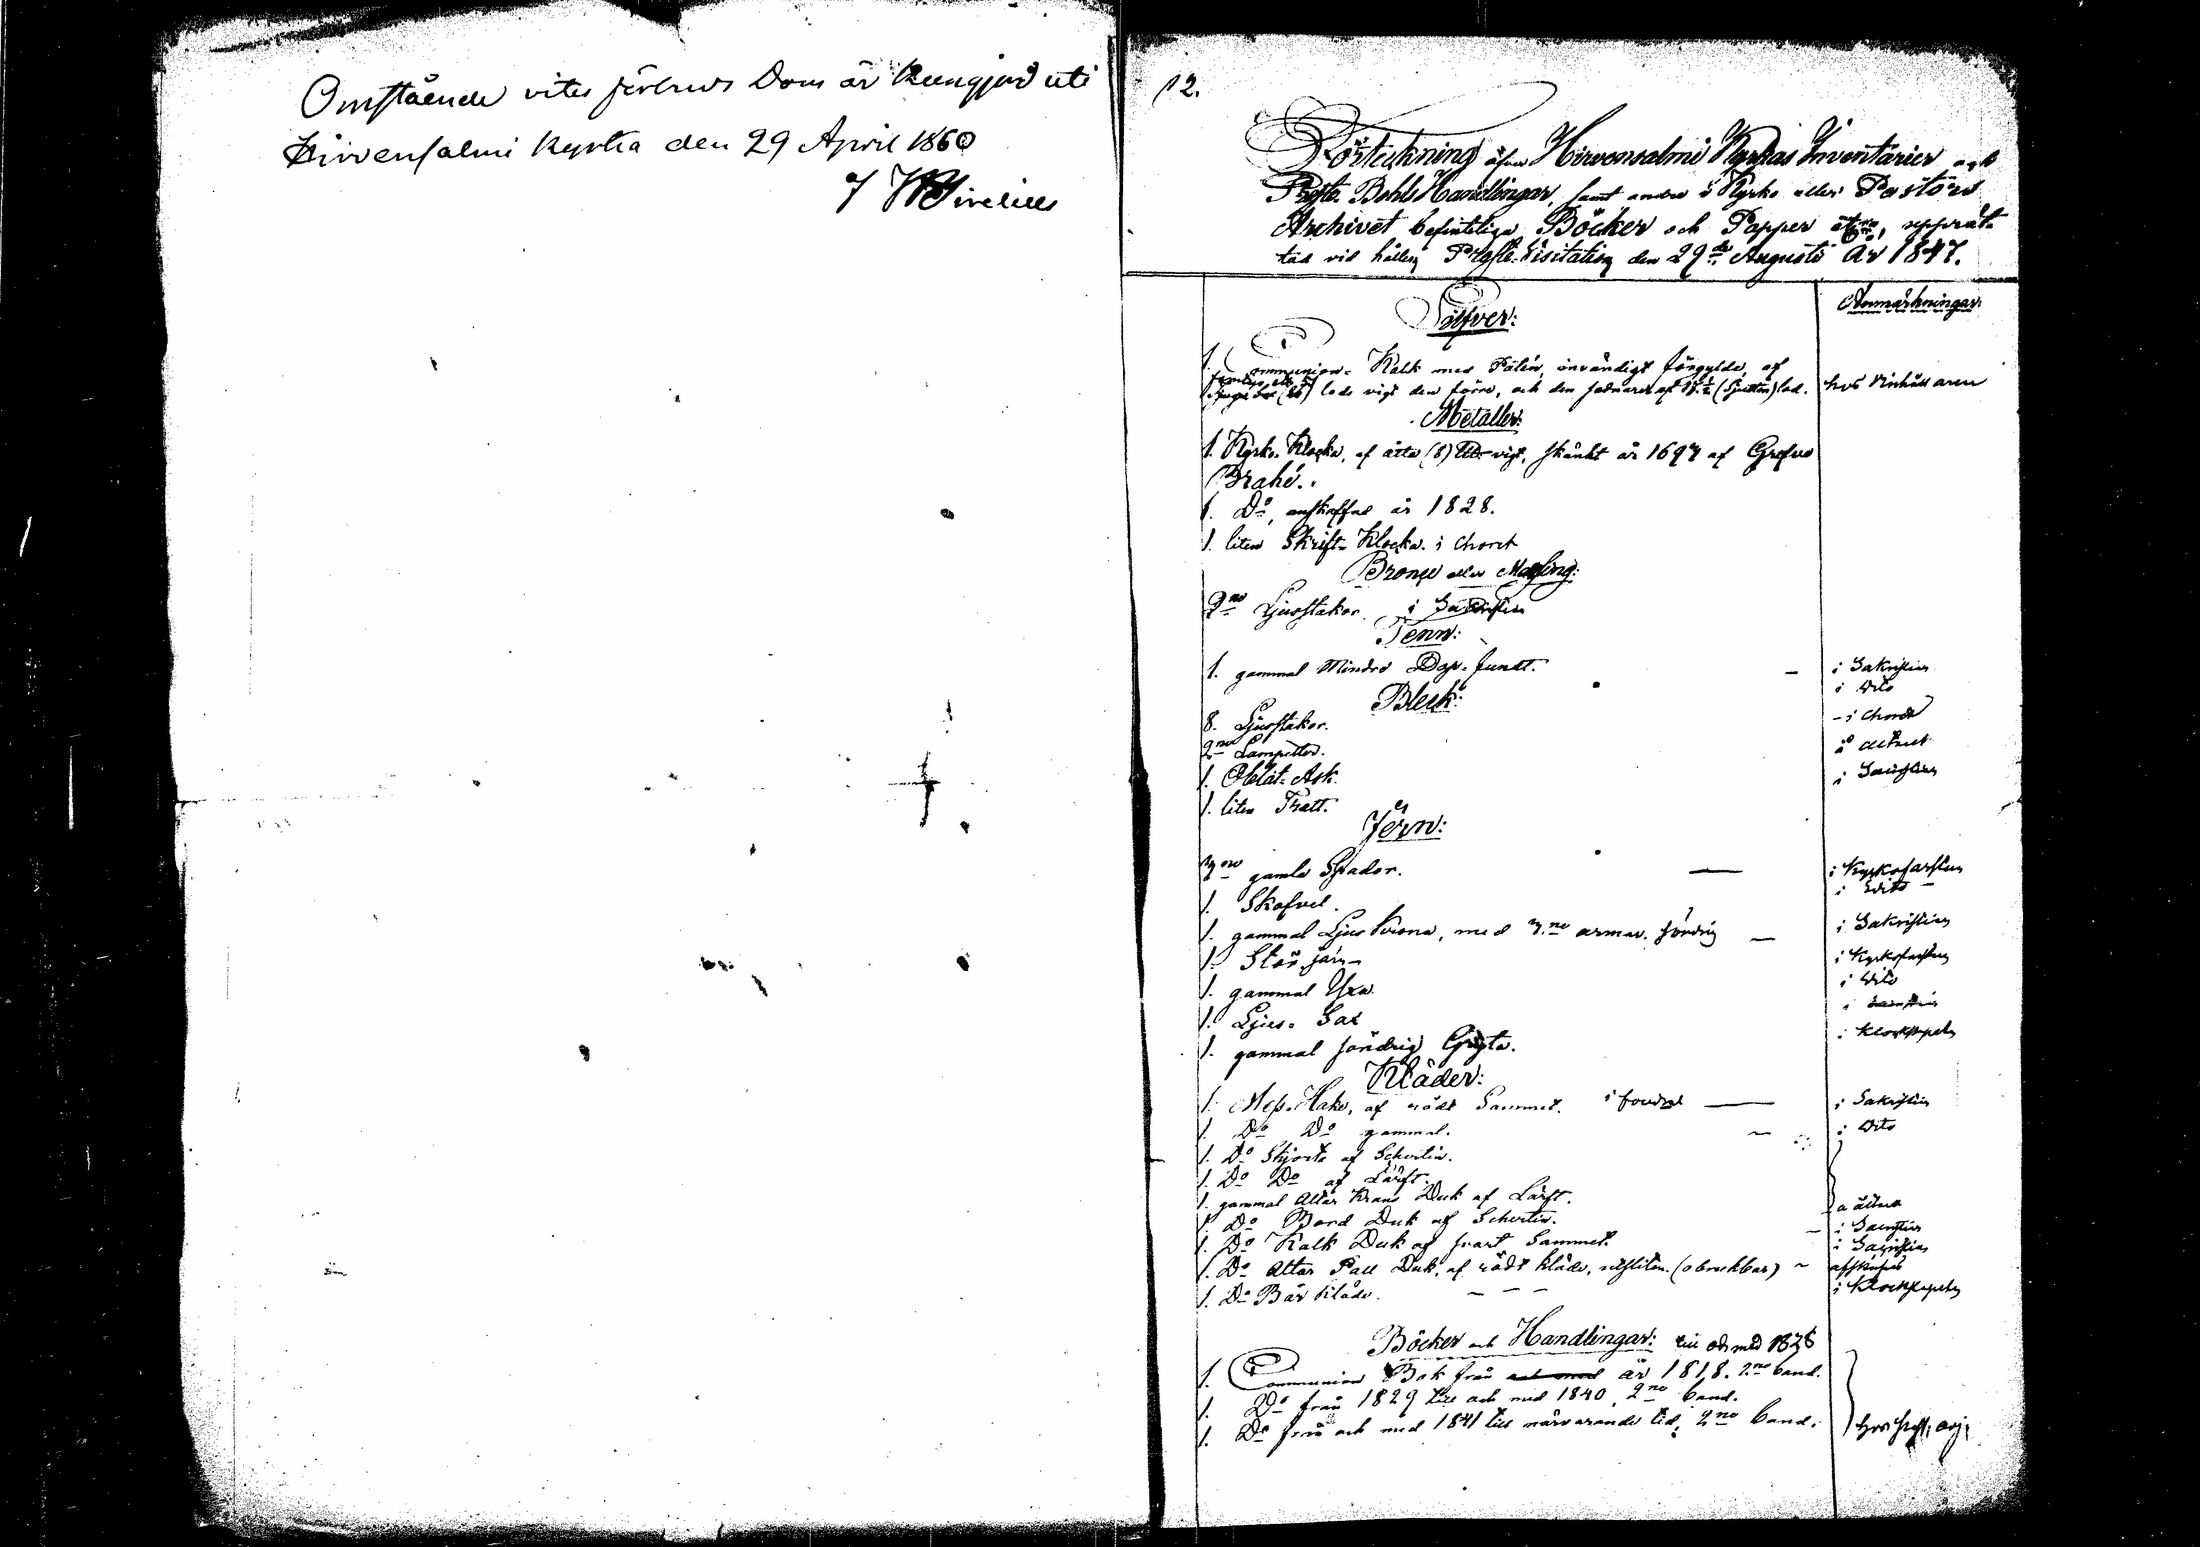 Omstående vites förbuds Dom är kungjord uti
Hirvensalmi kyrka den 29 April 1860
12.
Förteckning öfver Hirvensalmi Kyrkas Inventarier och
Prefte Bohls Handlingar, samt andra i Kyrko eller Pastors
Archivet befintliga Böcker och Papper etc, upprät-
tad vid hållen Prosts Visitation den 29de Augusti År 1847.
Anmärkningar
Silfver:
1. Communion-Kalk med Patén, invändigt förgylde, af
lods vigt den förre, och den sednare af (Sjutton) lod.
Metaller:
1. Kyrko-Klocka, af åtta (8) vigt, skänkt år 1697 af Grefve
Brahé.
1. Do, anskaffad år 1828.
1. liten Skrift-Klocka i choret
Bronse eller Messing:
2ne Ljusstakor. i Sakristian
Tenn:
1. gammal Mindre Dop-funt. — i Sakristian
i dito
Bleck:
8. Ljusstakor. - i choret
2ne Lampetter.
1. Oblat-Ask. i Sacristian
1. liten Tratt.
Jern:
3ne gamla Spador. — i Kyrkofarstun
1. Skofvel. i dito
1. gammal Ljus Krona, med 3ne armar. söndrig — i Sakristian
1. Stör-järn i Kyrkofarstun
1. gammal Yxa. i dito
1. Ljus-Sax
1. gammal söndrig Gryta. i Klockstapeln
Kläder:
1. Mess-Hake, af rödt Sammet. i fodral — i Sakristian
1. Do Do gammal. i dito
1. Do Skjorta af Schertin.
1. Do Do af Lärft.
1. gammal Altar Krans Duk af Lärft.
1. Do Bord Duk af Schertin.
1. Do Kalk Duk af svart Sammet. i Sacristian
1. Do Altar Pall Duk, af rödt kläde, utsliten. (obrukbar)
1. Do Bår Kläde. i Klockstapeln
Böcker och Handlingar: till och med 1828
1. Communion Bok från och med år 1818. 2ne band.
1. Do från 1829 till och med 1840, 2ne band.
1. Do från och med 1841 till närvarande tid; 2ne band.